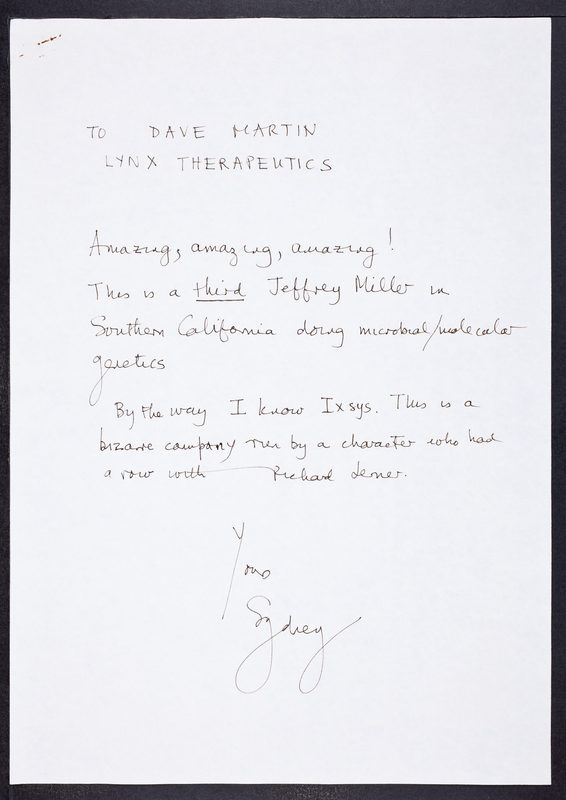 TO DAVE MARTIN
LYNX THERAPEUTICS
Amazing, amazing, amazing!
This is a third Jeffrey Miller in
Southern California doing microbial/molecular
genetics
By the way I know Ixsys. This is a
bizarre company run by a character who had
a row with Richard Lerner.
Yours
Sydney